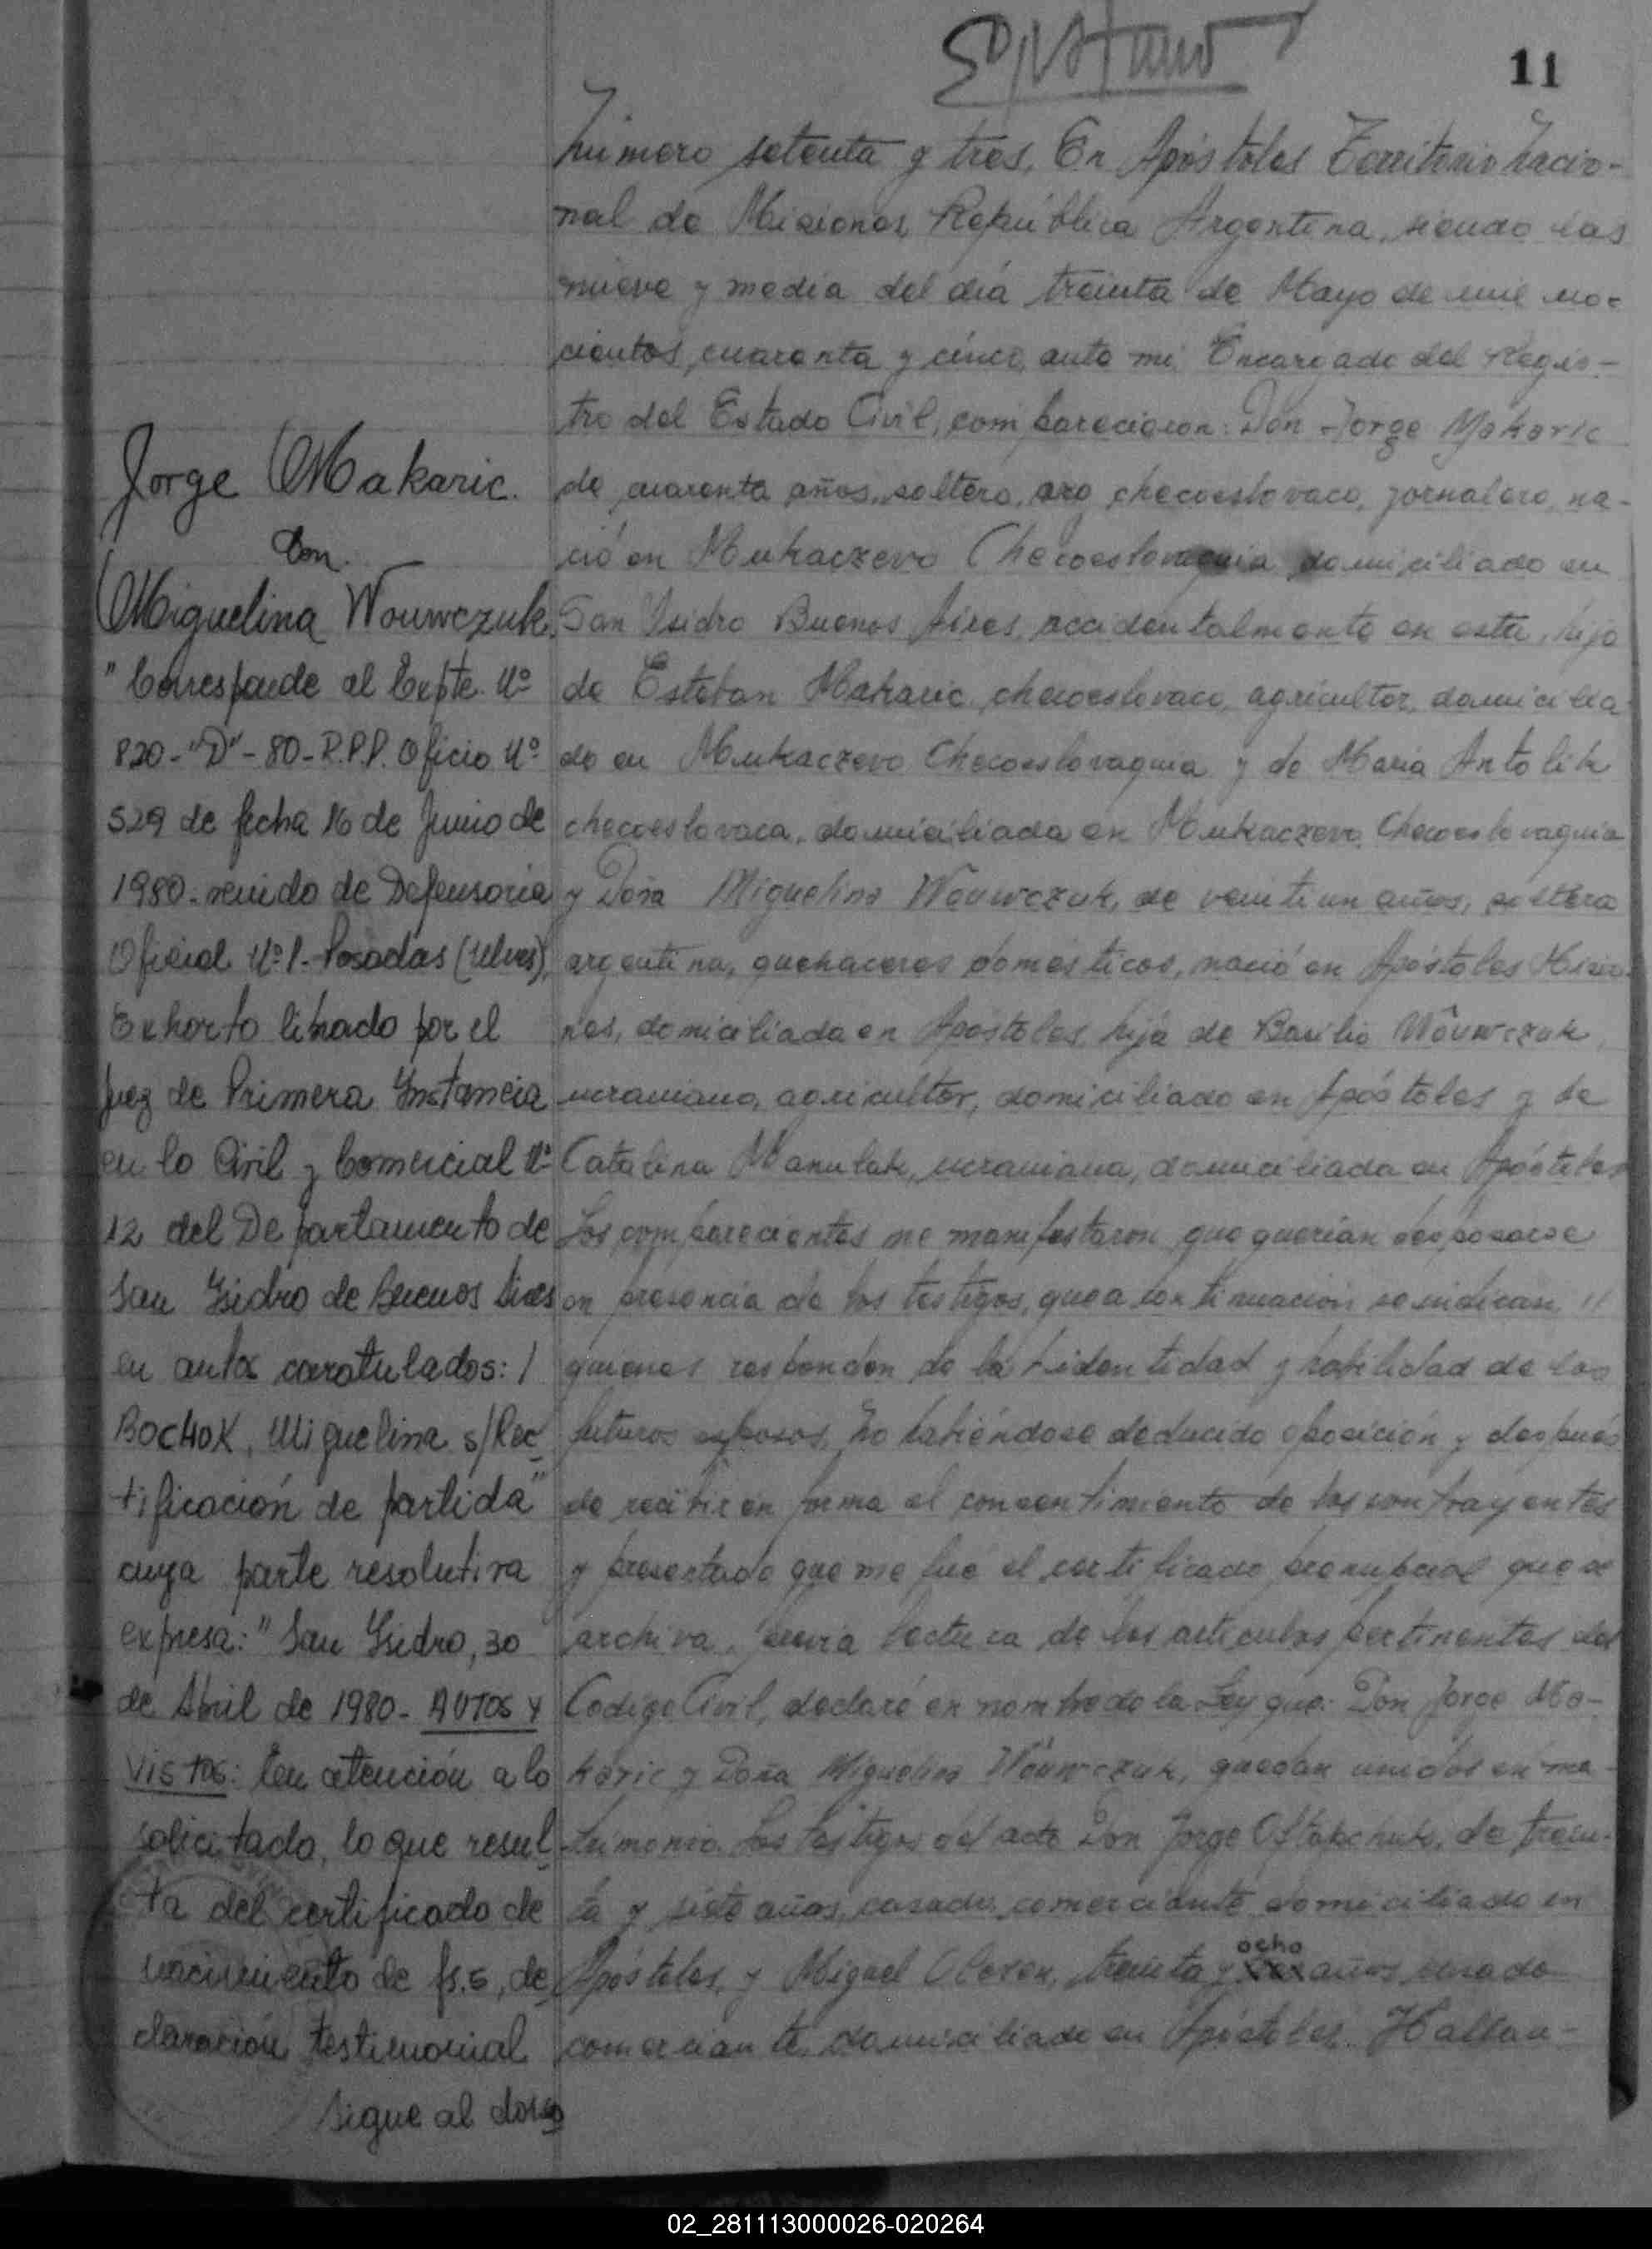 11
Número setenta y tres, En Apóstoles Territorio Nacio-
nal de Misiones, República Argentina, siendo las
nueve y media del día treinta de Mayo de mil no-
cientos, cuarenta y cinco, ante mi Encargado del Regis-
tro del Estado Civil, comparecieron: Don Jorge Makaric
de cuarenta años, soltero, checoeslovaco, jornalero, na-
ció en Mukaczevo Checoeslovaquia domiciliado en
San Isidro Buenos Aires, accidentalmente en esta, hijo
de Esteban Makaric, checoeslovaco, agricultor, domicilia-
do en Mukaczevo Checoeslovaquia y de Maria Antolik
checoeslovaca, domiciliada en Mukaczevo, Checoeslovaquia
y Doña Miguelina Wouwczuk, de veintiun años, soltera
argentina, quehaceres domésticos, nació en Apóstoles Misio-
nes, domiciliada en Apóstoles, hija de Basilio Wouwczuk,
ucraniano, agricultor, domiciliado en Apóstoles y de
Catalina Manulak, ucraniana, domiciliada en Apóstoles
Los comparecientes me manifestaron que querían desposarse
en presencia de los testigos, que a continuación se indican //
quienes responden de la identidad y habilidad de los
futuros esposos, No habiéndose deducido oposición y después
de recibir en forma el consentimiento de los contrayentes
y presentado que me fué el certificado prenupcial que se
archiva, previa lectura de los artículos pertinentes del
Codigo Civil, declaré en nombre de la Ley que: Don Jorge Ma-
karic y Doña Miguelina Wouwczuk, quedan unidos en ma-
trimonio. Los testigos del acto Don Jorge Ostapchuk, de trein-
ta y siete años, casado, comerciante domiciliado en
ocho
Apóstoles, y Miguel treinta y años, casado
comerciante, domiciliado en Apóstoles. Hallan-
Jorge Makaric.
Con.
Miguelina Wouwczuk.
"Corresponde al Expte. Nº
820-"D"-80-R.P.P. Oficio Nº
529 de fecha 16 de Junio de
1980-venido de Defensoria
Oficial Nº 1-Posadas (Mnes),
Exhorto librado por el
Juez de Primera Instancia
en lo Civil y Comercial Nº
12 del Departamento de
San Isidro de Buenos Aires
en autos caratulados: /
BOCHOK, Miguelina s/Rec
tificación de partida"
cuya parte resolutiva
expresa: "San Isidro, 30
de Abril de 1980- AUTOS Y
VISTOS: En atención a lo
solicitado, lo que resul-
ta del certificado de
nacimiento de fs. 5, de-
claración testimonial
sigue al dorso
02_281113000026-020264